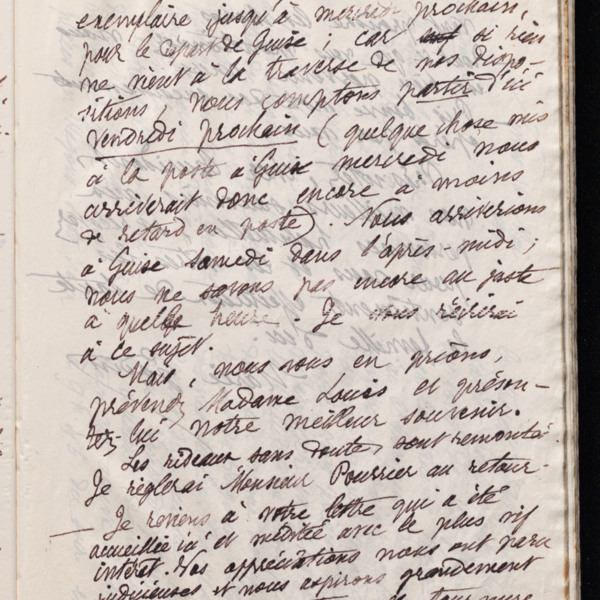 exemplaire jusqu'à mercredi prochain,
pour le départ de Guise ; car si rien
ne vient à la traverse de nos dispo-
sitions, nous comptons partir d'ici
Vendredi prochain (quelque chose mis
à la poste à Guise mercredi nous
arriverait donc encore à moins
de retard en poste). Nous arriverions
à Guise Samedi dans l'après-midi ;
nous ne savons pas encore au juste
à quelle heure. Je vous récrirai
à ce sujet.
Mais, nous vous en prions,
prévenez Madame Louis et présen-
tez lui notre meilleur souvenir.
Les rideaux sans doute, sont remontés.
Je règlerai Monsieur Pourrier au retour.
— Je reviens à votre lettre qui a été
accueillie ici et méditée avec le plus vif
intérêt. Vos appréciations nous ont paru
judicieuses et nous aspirons grandement
tournure